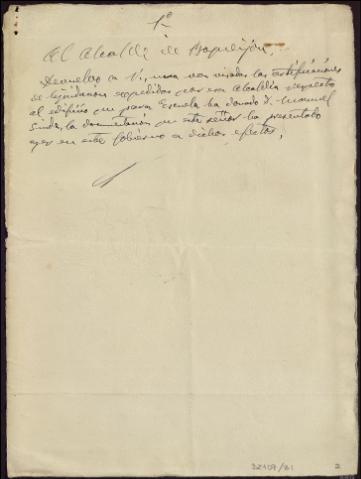 1º
Al Alcalde de Boqueijón,
Devuelvo a V. una vez visadas las certificaciones
de liquidación expedidas por esa Alcaldía respecto
al edificio que para Escuela ha donado D. Manuel
la documentación que este señor ha presentado
ayer en este Gobierno a dichos efectos,
32107/21
2